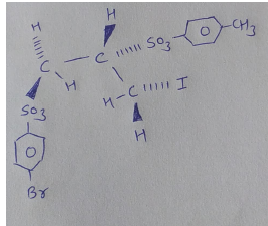 H
H
C
C
SO3
CH3
H
SO3
H
C
I
H
Br